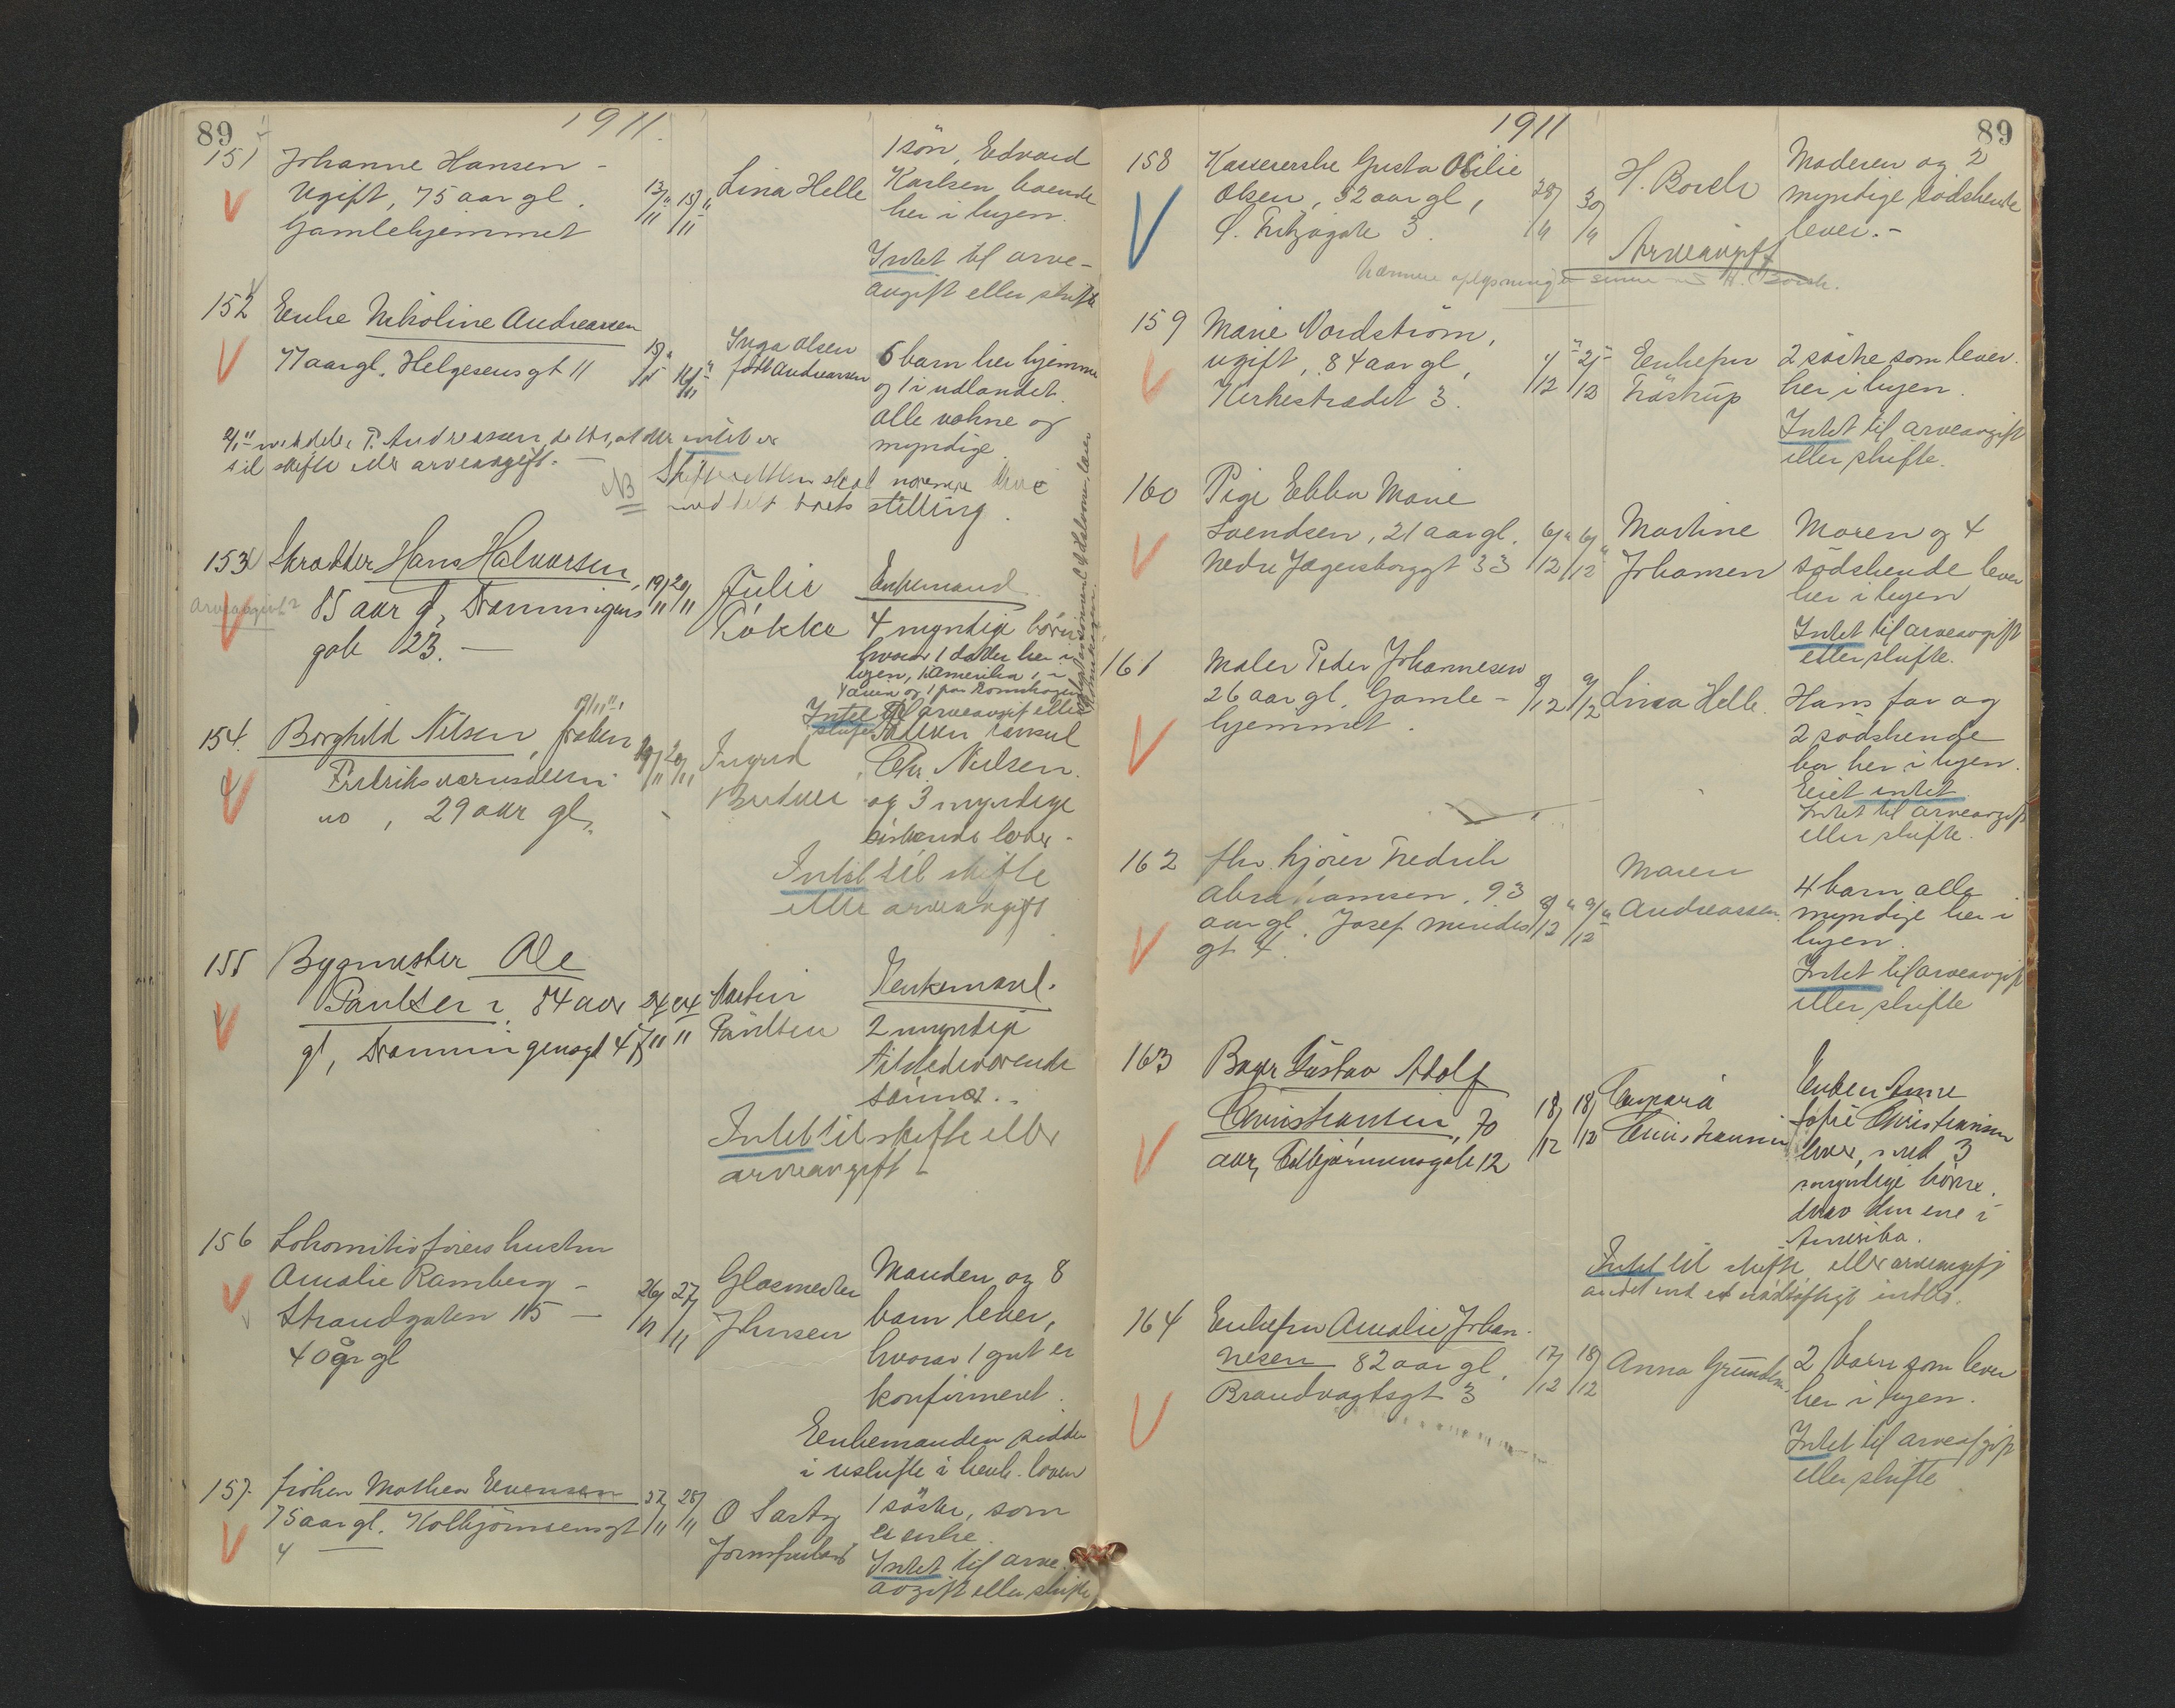 89
1911
151 Johanne Hansen -
Ugift, 75 aar gl.
Gamlehjemmet
13/11 13/11
Lina Helle
1 søn, Edvard
Karlsen, boende
her i byen.
Intet til arve-
avgift eller skifte
152 Enke Nikoline Andreassen
77 aar gl. Helgesensgt 11
Inga Olsen
født Andreassen
6 barn her hjemme
og 1 i udlandet.
alle voksne og
myndige.
P. Andreassen, at der intet er
til skifte eller arveavgift.
NB
Skifteretten skal nærmere
boets stilling.
153 Skrædder Hans Halvorsen,
arveavgift?
85 aar gl, Dronningens
gate 23. —
19/11 20/11
Julie
Røkke
Enkemand
4 myndige børn
hvorav 1 datter her i
byen, 1 Amerika, 1 i
og 1 paa
Intet til arveavgift eller
skifte
154. Borghild Nilsen, frøken
Fredriksværnsveien
no , 29 aar gl.
20/11 20/11
Ingrid
Faderen konsul
Chr. Nielsen.
og 3 myndige
søskende lever -
Intet til skifte
eller arveavgift
155 Bygmester Ole
Paulsen, 84 aar
gl, Dronningensgt 45
24/11 24/11
Martin
Paulsen
Enkemand.
2 myndige
tilstedeværende
sønner. -
Intet til skifte eller
arveavgift -
156 Lokomotivførers hustru
Amalie Ramberg -
Strandgaten 15 —
40 år gl
26/11 27/11
Glasmester
Johnsen
Manden og 8
barn lever,
hvorav 1 gut er
konfirmeret.
Enkemanden sidder
i uskifte i henh. loven
157. Frøken Mathea Evensen
75 aar gl. Kolbjørnsensgt
4
27/11 28/11
O Sartz
1 søster, som
er enke.
Intet til arve-
avgift eller skifte
89
1911
158 Kassererske Gusta Otilie
Olsen, 32 aar gl,
28/11 30/11
H. Borch
Moderen og 2
myndige sødskende
lever. -
Arveavgift
Nærmere oplysninger H. Borch.
159 Marie Nordstrøm,
ugift, 84 aar gl,
Kirkestrædet 3.
Enkefru
Trøstrup
2 søstre som lever
her i byen.
Intet til arveavgift
eller skifte.
160 Pige Ebba Marie
Svendsen, 21 aar gl.
Nedre Jegersborggt 33
6/12 6/12
Martine
Johansen
Moren og 4
sødskende lever
her i byen
Intet til arveavgift
eller skifte.
161 Maler Peder Johannesen
26 aar gl. Gamle-
hjemmet.
8/12 9/12
Lina Helle.
Hans far og
2 sødskende
bor her i byen.
Eiet intet.
Intet til arveavgift
eller skifte.
162 fhv. kjører Fredrik
Abrahamsen, 93
aar gl. Josef Mindes
gt 4.
8/12 9/12
Maren
Andreassen.
4 barn alle
myndige her i
byen.
Intet til arveavgift
eller skifte
163 Bager Gustav Adolf
Christiansen, 70
aar, Kolbjørnsensgate 12
18/12 18/12
Christiansen
Enken Anne
Sofie Christiansen
lever, med 3
myndige børn.
derav den ene i
Amerika.
Intet til skifte eller arveavgift
andet end et nødtørftigt indbo.
164 Enkefru Amalie Johan-
nesen 82 aar gl.
Brandvagtsgt 3
17/12 18/12
Anna
2 barn som lever
her i byen.
Intet til arveafgift
eller skifte